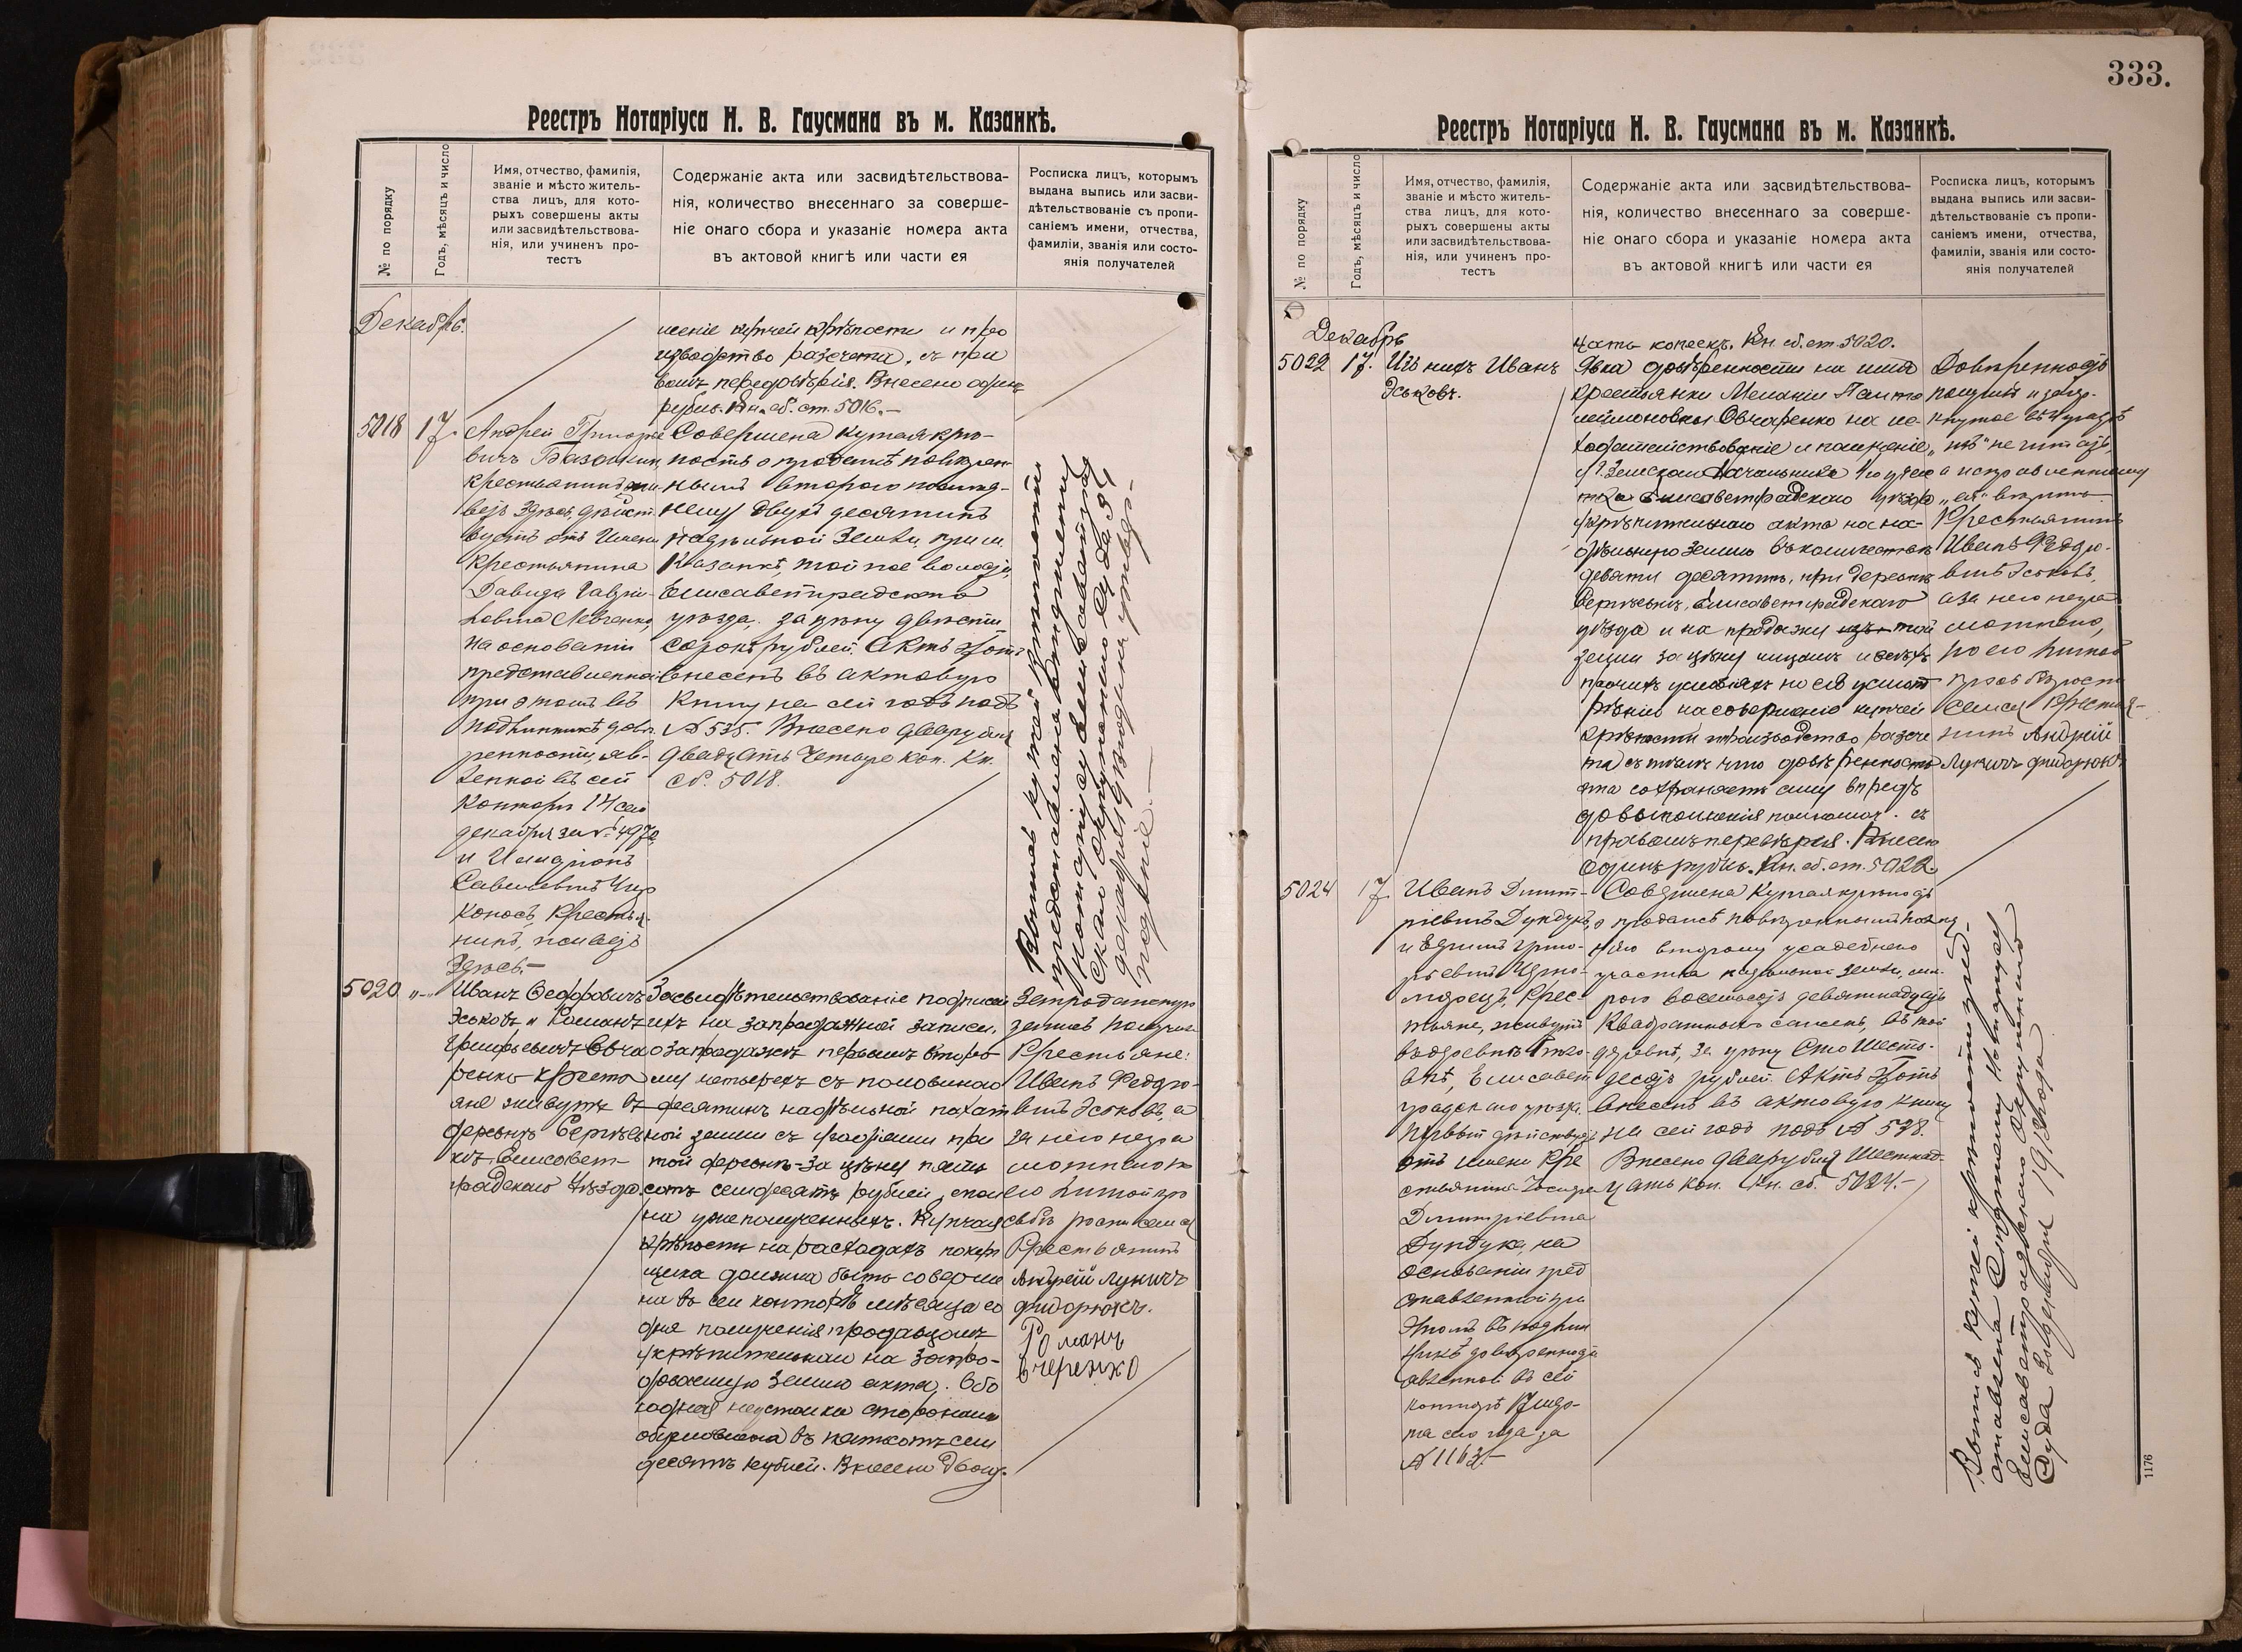 Реестръ Нотаріуса Н. В. Гаусмана въ м. Казанкѣ.
№ по порядку
Годъ, мѣсяцъ и число
Имя, отчество, фамилія,
званіе и мѣсто житель-
ства лицъ, для кото-
рыхъ совершены акты
или засвидѣтельствова-
нія, или учиненъ про-
тестъ
Содержаніе акта или засвидѣтельствова-
нія, количество внесеннаго за соверше-
ніе онаго сбора и указаніе номера акта
въ актовой книгѣ или части ея
Росписка лицъ, которымъ
выдана выпись или засви-
дѣтельствованіе съ пропи-
саніемъ имени, отчества,
фамиліи, званія или состо-
янія получателей
Декабрь.
шеніе купчей крѣпости и про
изводство разсчета, съ пра
вомъ передовѣрія. Внесено одинъ
рубль. Кн. сб. ст. 5016.—
5018
17.
Андрей Григорье
вичъ
крестьянинъ, жи
ветъ здѣсь, дѣйст
вуетъ отъ имени
крестьянина
Давида Гаврии-
ловича Левченко,
на основаніи
представленной
при этомъ въ
подлинникѣ довѣ
ренности, яв-
ленной въ сей
конторѣ 14 сего
декабря за № 4970
и
Савельевичъ Чер
коносъ, крестья-
нинъ, живетъ
здѣсь.—
Совершена купчая крѣ-
пость о продажѣ повѣрен-
нымъ второго послѣд-
нему двухъ десятинъ
надѣльной земли при м.
Казанкѣ, той же волости,
Елисаветградскаго
уѣзда, за цѣну двѣсти
сорокъ рублей. Актъ этотъ
внесенъ въ актовую
книгу на сей годъ подъ
№ 535. Внесено два рубля
двадцать четыре коп. Кн.
сб. 5018.
Выпись купчей крѣпости
представлена
Нотаріусу Елисаветград
скаго Окружного Суда 31
декабря
5020
"-"
Иванъ Ѳеодоровичъ
Эськовъ и Романъ
Григорьевичъ Овча
ренко крестья
яне живутъ въ
деревнѣ Сергѣев
кѣ Елисавет-
градскаго уѣзда.
Засвидѣтельствованіе подписей
ихъ на запродажной записи.
о запродажѣ первымъ второ
му четырехъ съ половиною
десятинъ надѣльной пахат
ной земли съ угодіями при
той деревнѣ за цѣну пять
сотъ семдесятъ рублей, спол
на уже полученныхъ. Купчая
крѣпость на расходахъ покуп
щика должна быть соверше
на въ сей конторѣ мѣсяца со
дня полученія продавцомъ
укрѣпительнаго на запро-
данную землю акта. Обо
юдная неустойка сторонами
обусловлена въ пятьсотъ сем
десятъ рублей. Внесено двад-
Запродажную
запись получили
Крестьяне:
Иванъ Федоро-
вичъ Эськовъ, а
за него негра
мотнаго по
его личной про
сьбѣ росписался
Крестьянинъ
Андрей Лукичъ
Фидорюкъ.
Романъ
Вчеренко
333.
Реестръ Нотаріуса Н. В. Гаусмана въ м. Казанкѣ.
№ по порядку
Годъ, мѣсяцъ и число
Имя, отчество, фамилія,
званіе и мѣсто житель-
ства лицъ, для кото-
рыхъ совершены акты
или засвидѣтельствова-
нія, или учиненъ про-
тестъ
Содержаніе акта или засвидѣтельствова-
нія, количество внесеннаго за соверше-
ніе онаго сбора и указаніе номера акта
въ актовой книгѣ или части ея
Росписка лицъ, которымъ
выдана выпись или засви-
дѣтельствованіе съ пропи-
саніемъ имени, отчества,
фамиліи, званія или состо-
янія получателей
Декабрь
цать копеекъ. Кн. сб. ст. 5020.
5022
17.
Изъ нихъ Иванъ
Эськовъ.
Явка довѣренности на имя
крестьянки Меланіи Панте
леймоновны Овчаренко на хо
датайствованіе и полученіе,
у г. Земскаго Начальника 1го учас
тка Елисаветградскаго уѣзда
укрѣпительнаго акта на на-
дѣльную землю въ количествѣ
девяти десятинъ, при деревнѣ
Сергѣевкѣ, Елисаветградскаго
уѣзда и на продажу той
земли за цѣну лицамъ и всѣхъ
прочихъ условіяхъ по ея усмот
рѣнію на совершеніе купчей
крѣпости и производство разсче
та съ тѣмъ что довѣренность
эта сохраняетъ силу впредь
до выполненія полностью. съ
правомъ перевѣрія. Внесено
одинъ рубль. Кн. сб. ст. 5022
Довѣренность
получилъ и зачер-
кнутое
"на" не читать,
а исправленному
"ея" вѣрить
Крестьянинъ
Иванъ Федоро-
вичъ Эськовъ,
а за него негра
мотнаго,
по его личной
просьбѣ роспи
сался Крестья-
нинъ Андрей
Лукичъ Фидорюкъ
5024
17.
Иванъ Дмит-
ріевичъ Дундукъ,
и Ефимъ Григо-
рьевичъ Черно-
морецъ, крес-
тьяне, живутъ
въ деревнѣ
Елисавет
градскаго уѣзда.
Первый дѣйствуетъ
отъ имени кре
стьянина Іосифа
Дмитріевича
Дундука, на
основаніи пред
ставленной при
этомъ въ подлин
никѣ довѣренности
явленной въ сей
конторѣ
та сего года за
№ 1163.—
Совершена купчая крѣпость
о продажѣ повѣреннымъ пер
ваго второму усадебнаго
участка надѣльной земли, мѣ
рою восемьсотъ девятнадцать
квадратныхъ сажень, въ той
деревнѣ, за цѣну сто шесть-
десятъ рублей. Актъ этотъ
внесенъ въ актовую книгу
на сей годъ подъ № 538.
Внесено два рубля шестнад-
цать коп. Кн. сб. 5024.—
Выпись купчей крѣпости пред-
ставлена Старшему Нотаріусу
Елисаветградскаго Окружного
Суда 31 декабря 1912 года
1176